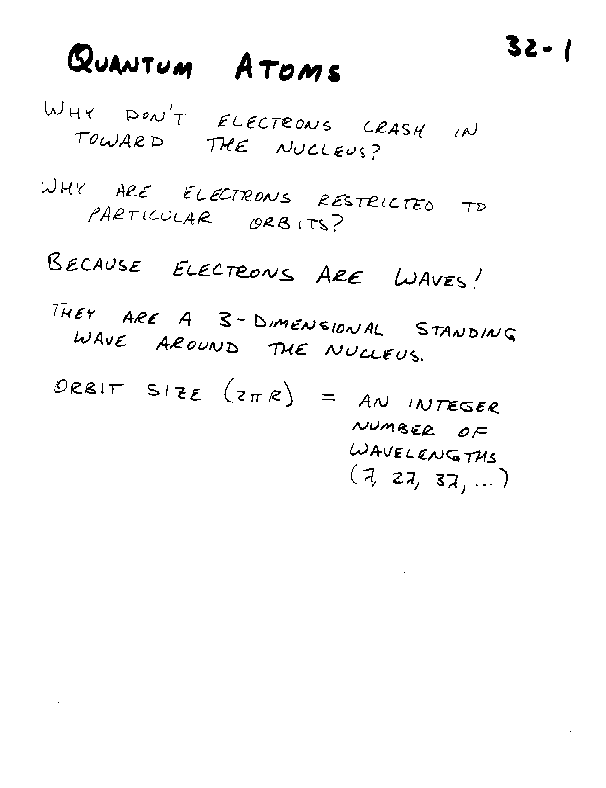 32-1
QUANTUM ATOMS
WHY DON'T ELECTRONS CRASH IN
TOWARD THE NUCLEUS?
WHY ARE ELECTRONS RESTRICTED TO
PARTICULAR ORBITS?
BECAUSE ELECTRONS ARE WAVES!
THEY ARE A 3-DIMENSIONAL STANDING
WAVE AROUND THE NUCLEUS.
ORBIT SIZE (2πR) = AN INTEGER
NUMBER OF
WAVELENGTHS
(λ, 2λ, 3λ, ...)